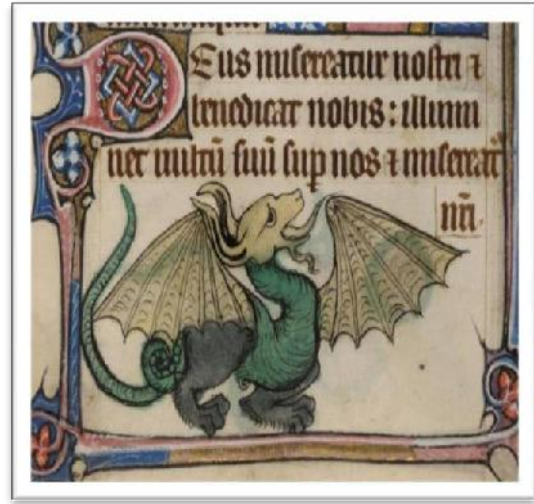 Deus misereatur nostri ⁊
benedicat nobis : illumi
net uultū suū suꝑ nos ⁊ misereat᷑
nr̄i.